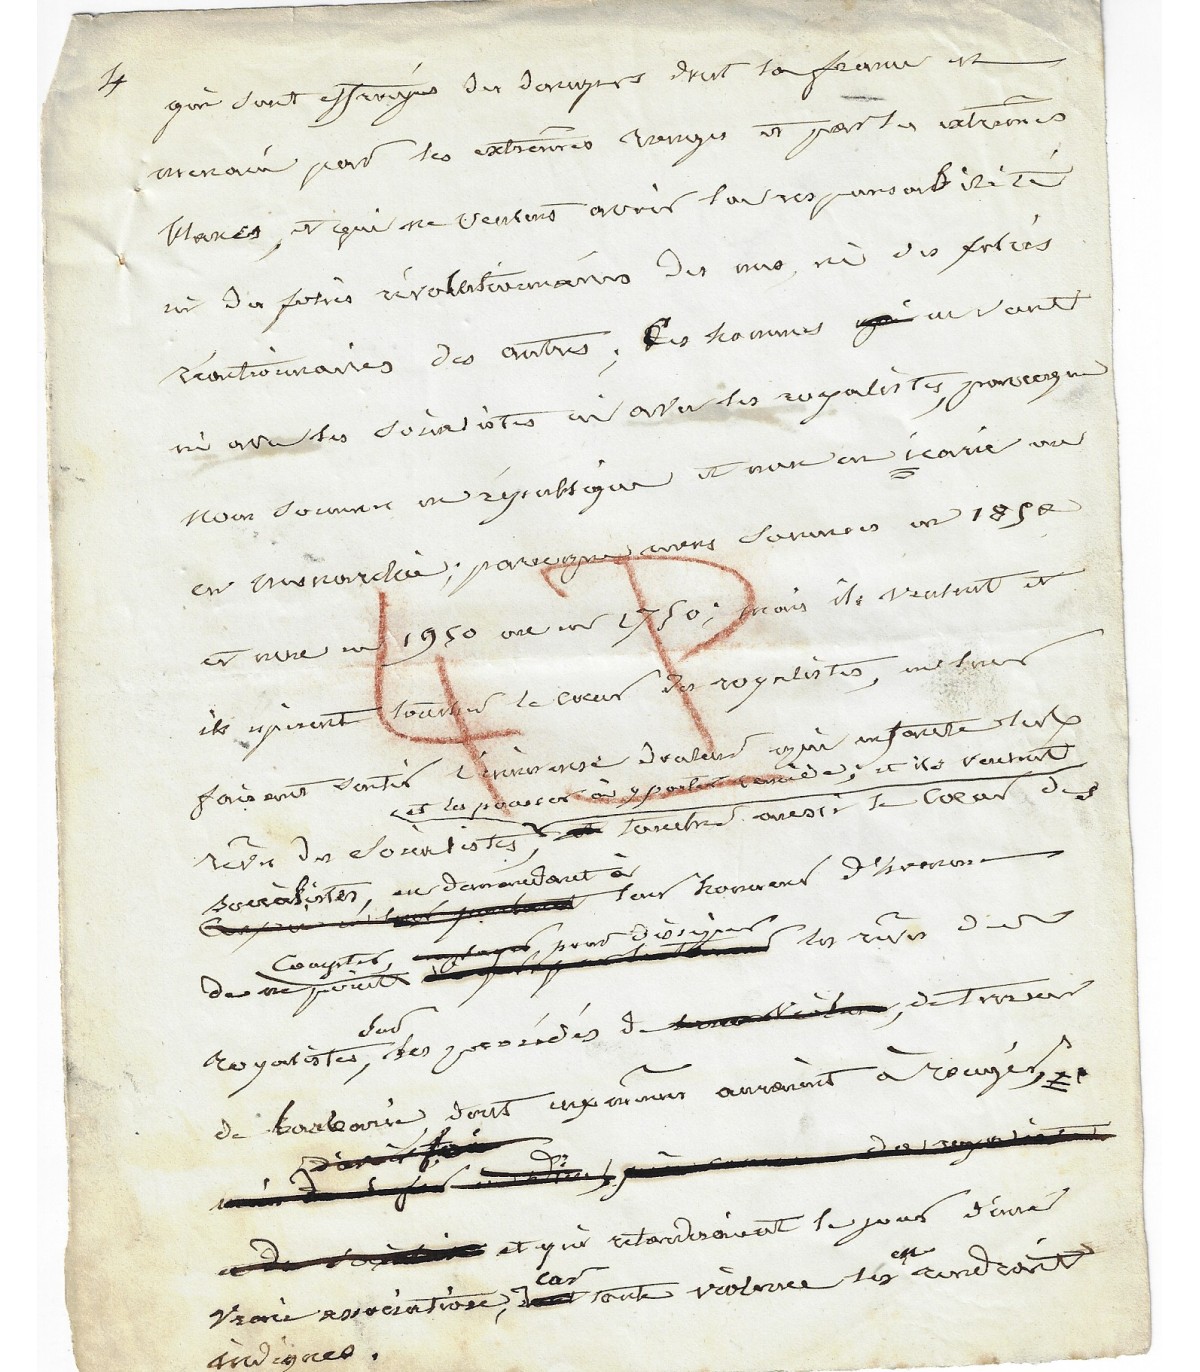 4
qui sont effrayés des dangers dont la france est
menacée par les extrêmes rouges et par les extrêmes
blancs, et qui ne veulent avoir la responsabilité
ni des folies révolutionnaires des uns, ni des folies
réactionnaires des autres; Ces hommes ne vont
ni avec les socialistes ni avec les royalistes, parceque
nous sommes en république et non en icarie ou
en monarchie; parceque nous sommes en 1850
et non en 1950 ou en 1750; mais ils veulent et
4 P
ils espèrent toucher le cœur des royalistes, en leur
faisant sentir l'immense douleur qui enfante les
et les pousser à y porter remède; et ils veulent
rêves des socialistes, toucher aussi le cœur des
socialistes, en demandant à
leur honneur d'hommes
Comptes, pour désigner
de ne point les rêves des
royalistes, des procédés de , de terreur
de barbarie dont eux-mêmes auraient à rougir,
et qui retarderaient le jour d'une
vraie association, car toute violence les en rendrait
indignes.